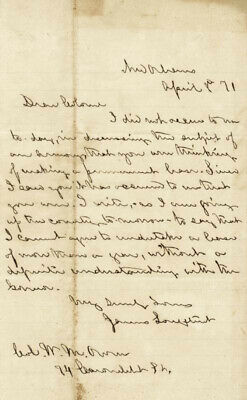 New Orleans
April 8th 71
Dear Colonel
I did not occur to me
to-day, in discussing the subject of
an armory, that you were thinking
of making a permanent lease. Since
I saw you it has occurred to me that
you were. I write, as I am going
up the country to-morrow to say that
I cannot agree to undertake a lease
of more than a year, without a
definite understanding with the
Governor.
Very Truly Yours
James Longstreet
Col W. M. Owen
74 Carondelet St.